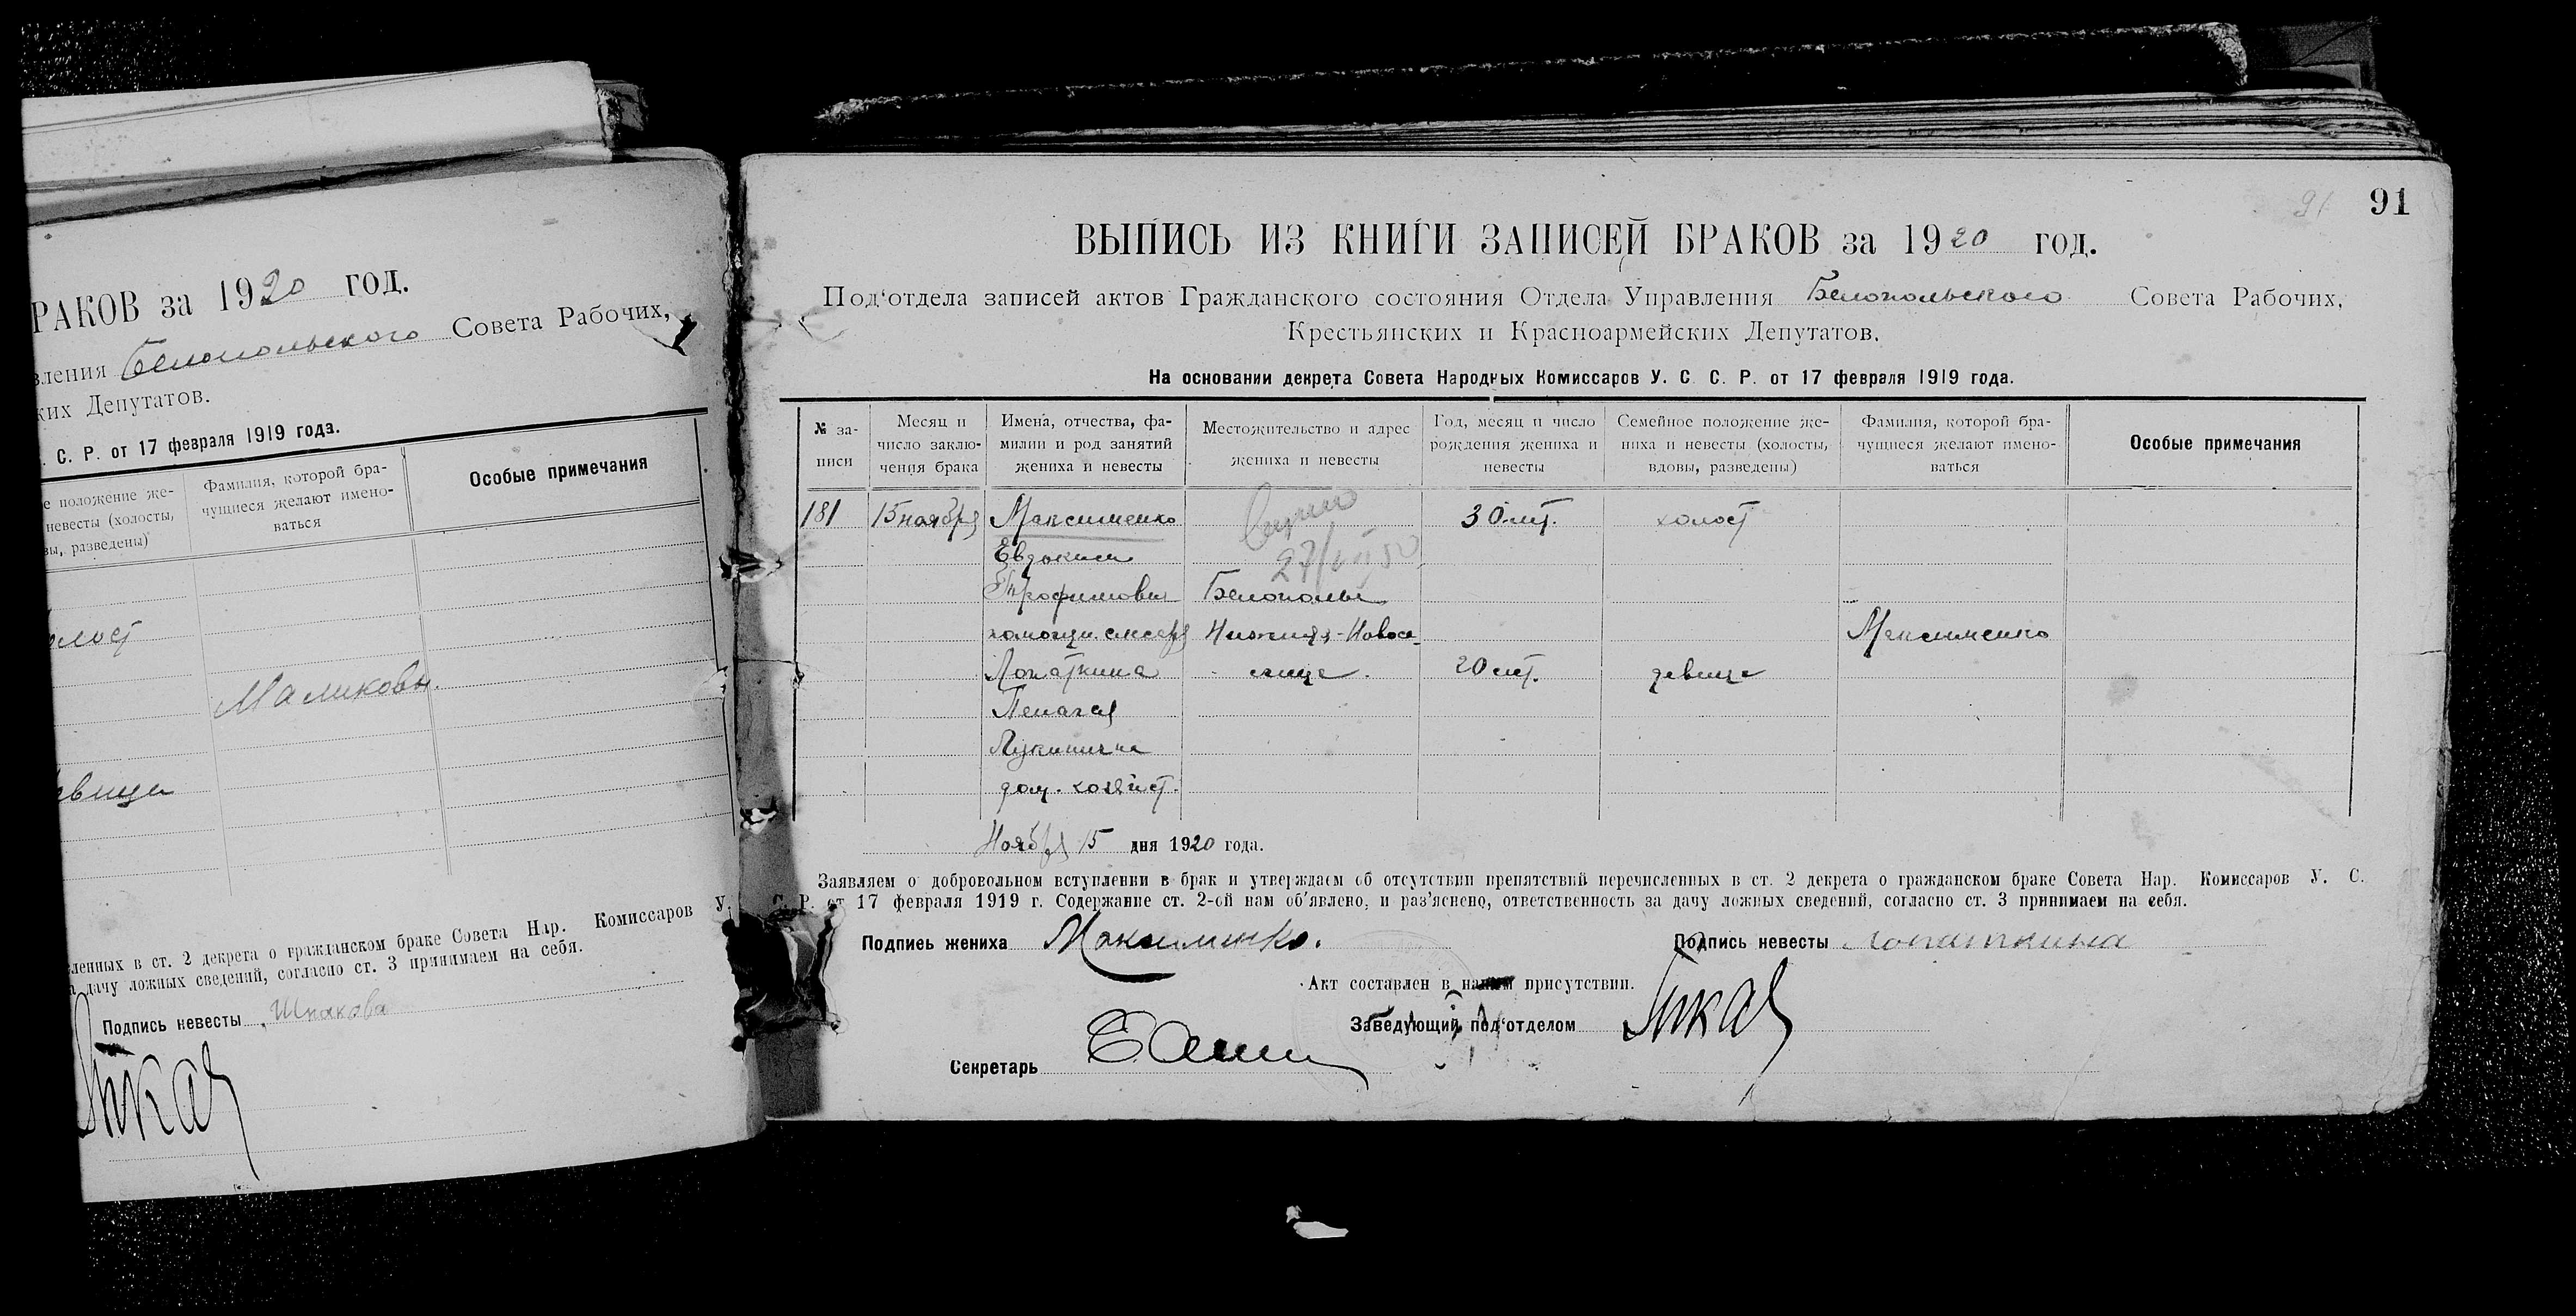 РАКОВ за 1920 год.
вления Белопольского Совета Рабочих,
ких Депутатов.
С. Р. от 17 февраля 1919 года.
е положение же-
невесты (холосты,
вы, разведены)
Фамилия, которой бра-
чущиеся желают имено-
ваться
Особые примечания
олост
Маликовы.
евица
ленных в ст. 2 декрета о гражданском браке Совета Нар. Комиссаров У.
а дачу ложных сведений, согласно ст. 3 принимаем на себя.
Подпись невесты Шпакова
91 91
ВЫПИСЬ ИЗ КНИГИ ЗАПИСЕЙ БРАКОВ за 1920 год.
Под'отдела записей актов Гражданского состояния Отдела Управления Белопольского Совета Рабочих,
Крестьянских и Красноармейских Депутатов.
На основании декрета Совета Народных Комиссаров У. С. С. Р. от 17 февраля 1919 года.
№ за-
писи
Месяц и
число заклю-
чения брака
Имена, отчества, фа-
милии и род занятий
жениха и невесты
Местожительство и адрес
жениха и невесты
Год, месяц и число
рождения жениха и
невесты
Семейное положение же-
ниха и невесты (холосты,
вдовы, разведены)
Фамилия, которой бра-
чущиеся желают имено-
ваться
Особые примечания
181 15 ноября Максименко 30 лет. холост
Евдоким
Трофимович Белополье
Нижняя-Новосе- Максименко
Лопаткина лица. 20 лет. девица
Пелагея
Лукинична
дом. хозяйст.
Ноября 15 дня 1920 года.
Заявляем о добровольном вступлении в брак и утверждаем об отсутствии препятствий перечисленных в ст. 2 декрета о гражданском браке Совета Нар. Комиссаров У. С.
С. Р. от 17 февраля 1919 г. Содержание ст. 2-ой нам об'явлено, и раз'яснено, ответственность за дачу ложных сведений, согласно ст. 3 принимаем на себя.
Подпись жениха Максименко. Подпись невесты Лопаткина
Акт составлен в присутствии.
Заведующий под'отделом
Секретарь